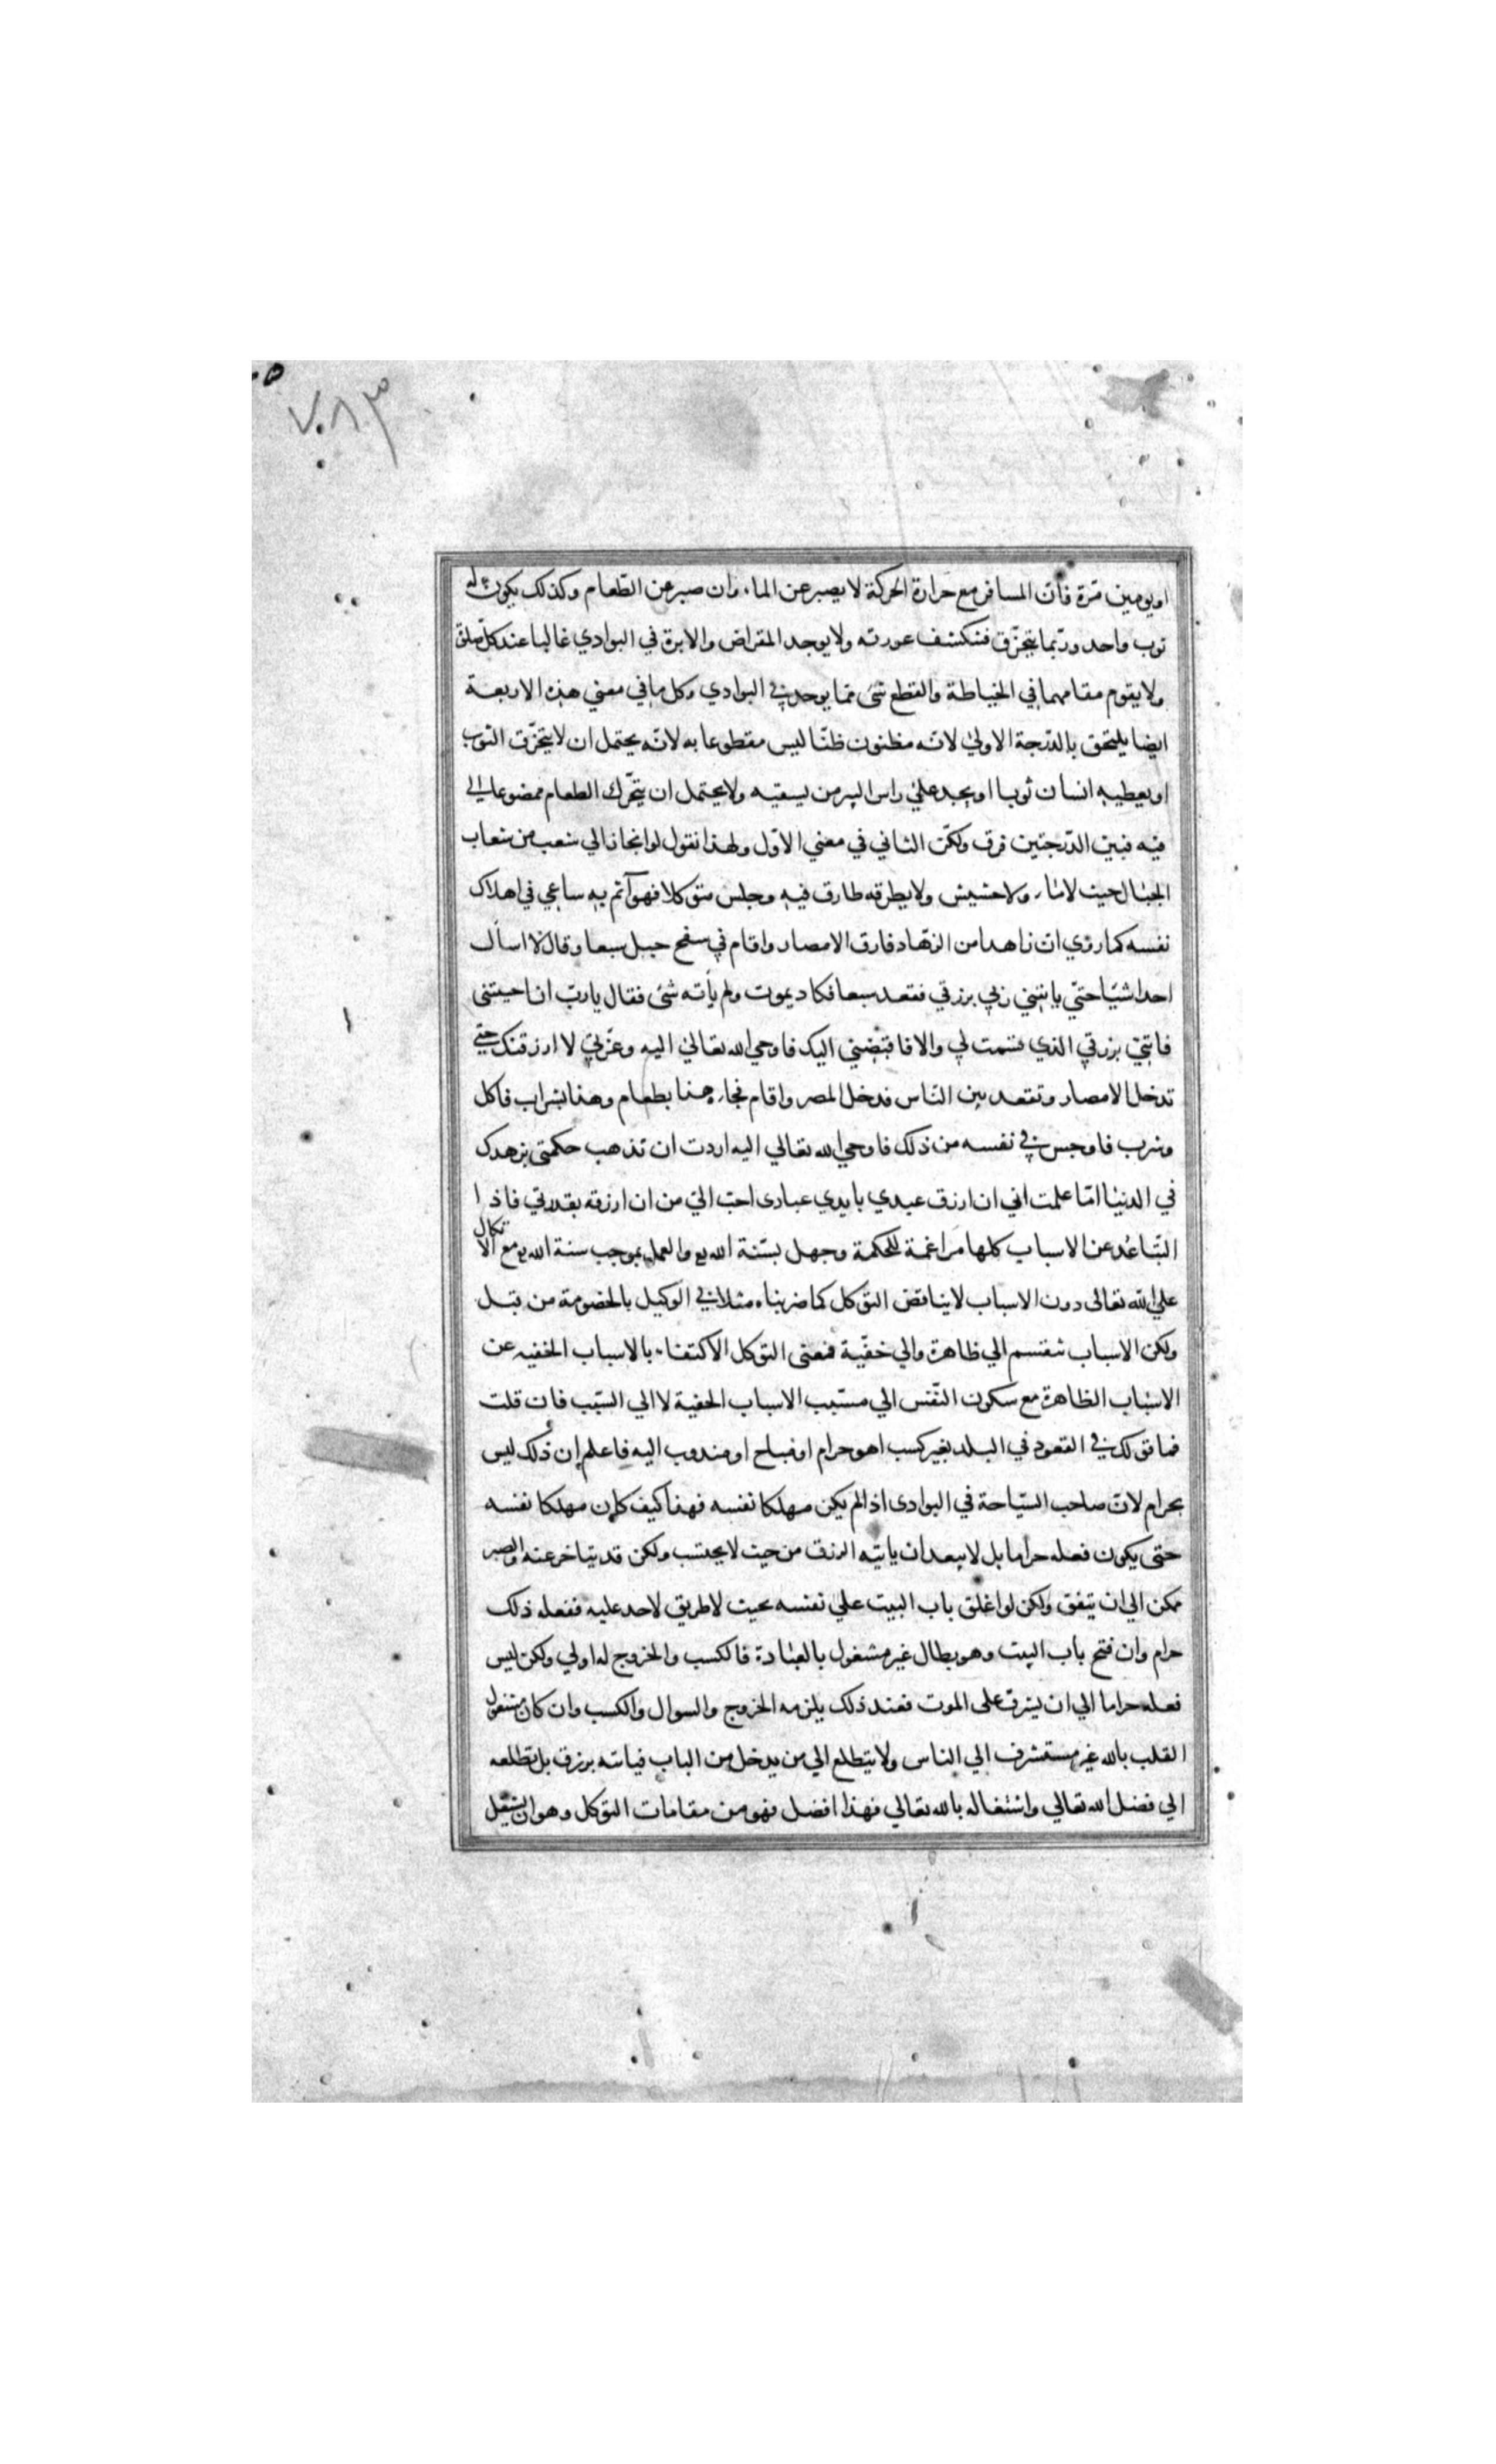 ٧٨٣
او يومين مرة فان المسافر مع حرارة الحركة لا يصبر عن الماء وان صبر عن الطعام وكذلك يكون له
ثوب واحد وربما يتخرق فتنكشف عورته ولا يوجد المقراض والابرة في البوادي غالبا عند كل صلوة
ولا يقوم مقامهما في الخياطة والقطع شئ مما يوجد في البوادي وكل ما في معني هذه الاربعة
ايضا يلتحق بالدرجة الاولي لانه مظنون ظنا ليس مقطوعا به لانه يحتمل ان لا يتخرق الثوب
او يعطيه انسان ثوبا او يجد علي راس البير من يسقيه ولا يحتمل ان يتحرك الطعام ممضوعا الي
فيه فبين الدرجتين فرق ولكن الثاني في معني الاول ولهذا نقول لو انحاز الي شعب من شعاب
الجبال حيث لا ماء ولا حشيش ولا يطرقه طارق فيه وجلس متوكلا فهو آثم به ساعي في اهلاك
نفسه كما روي ان زاهدا من الزهاد فارق الامصار واقام في سفح جبل سبعا وقال لا اسأل
احدا شيا حتي ياتيني ربي برزقي فقعد سبعا فكاد يموت ولم يأته شئ فقال يارب ان احييتني
فاتني برزقي الذي قسمت لي والا فاقبضني اليك فاوحي الله تعالي اليه وعزتي لا ارزقنك حتي
تدخل الامصار وتقعد بين الناس فدخل المصر واقام فجاء هذا بطعام وهذا بشراب فاكل
وشرب فاوجس في نفسه من ذلك فاوحي الله تعالي اليه اردت ان تذهب حكمتي بزهدك
في الدنيا اما علمت اني ان ارزق عبدي بايدي عبادى احب الي من ان ارزقه بقدرتي فاذا
التباعد عن الاسباب كلها مراغمة للحكمة وجهل بسنة الله تع والعمل بموجب سنة الله تع مع الاتكال
علي الله تعالى دون الاسباب لا يناقض التوكل كما ضربناه مثلا في الوكيل بالخصومة من قبل
ولكن الاسباب تنقسم الي ظاهرة والي خفية فمعنى التوكل الاكتفاء بالاسباب الخفيه عن
الاسباب الظاهرة مع سكون النفس الي مسبب الاسباب الخفية لا الي السبب فان قلت
فما قولك في القعود في البلد بغير كسب اهو حرام او مباح او مندوب اليه فاعلم ان ذلك ليس
بحرام لان صاحب السياحة في البوادى اذا لم يكن مهلكا نفسه فهذا كيف كان مهلكا نفسه
حتى يكون فعله حراما بل لا يبعد ان ياتيه الرزق من حيث لا يحتسب ولكن قد يتاخر عنه والصبر
ممكن الي ان يتفق ولكن لو اغلق باب البيت علي نفسه بحيث لا طريق لاحد عليه ففعله ذلك
حرام وان فتح باب البيت وهو بطال غير مشغول بالعبادة فالكسب والخروج له اولي ولكن ليس
فعله حراما الي ان يشرف على الموت فعند ذلك يلزمه الخروج والسوال والكسب وان كان مشغول
القلب بالله غير مستشرف الي الناس ولا يتطلع الي من يدخل من الباب فياتيه برزق بل تطلعه
الي فضل الله تعالي واشتغاله بالله تعالي فهذا افضل فهو من مقامات التوكل وهو ان يشتغل